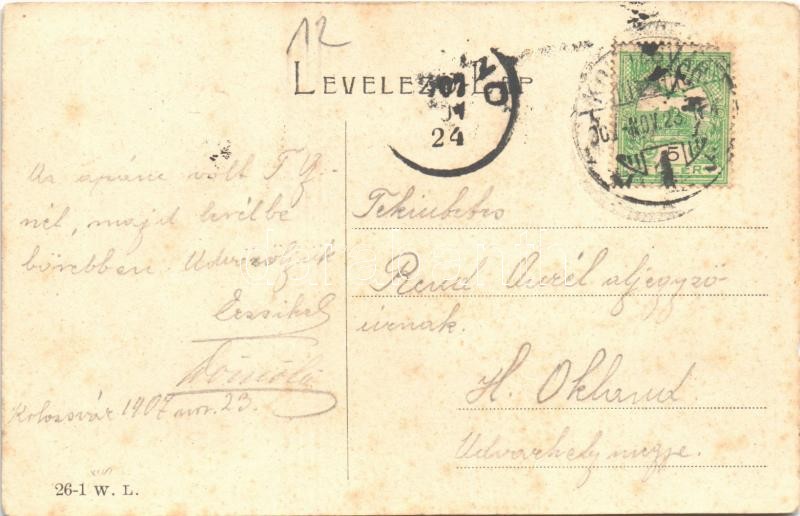 12
LEVELEZŐ-LAP
24
907 NOV. 23
5
Az apáne volt T. Gy.
nél, majd levélbe
bővebben. Üdvözöljük
Erzsikét
Kolozsvár 1907 nov. 23.
Tekintetes
Rend Aurél aljegyző
úrnak.
H. Okland
Udvarhely megye.
26-1 W. L.